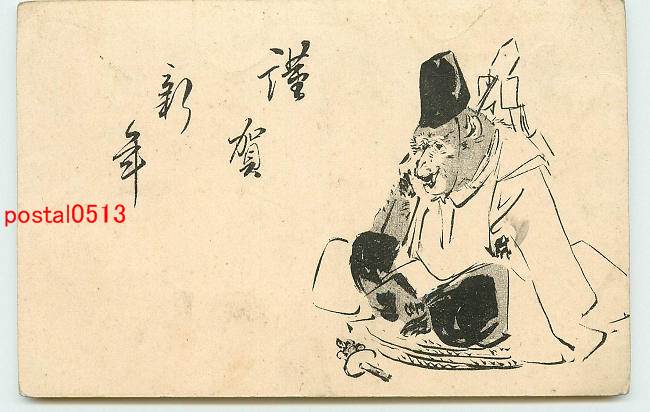 謹賀
新年
postal0513